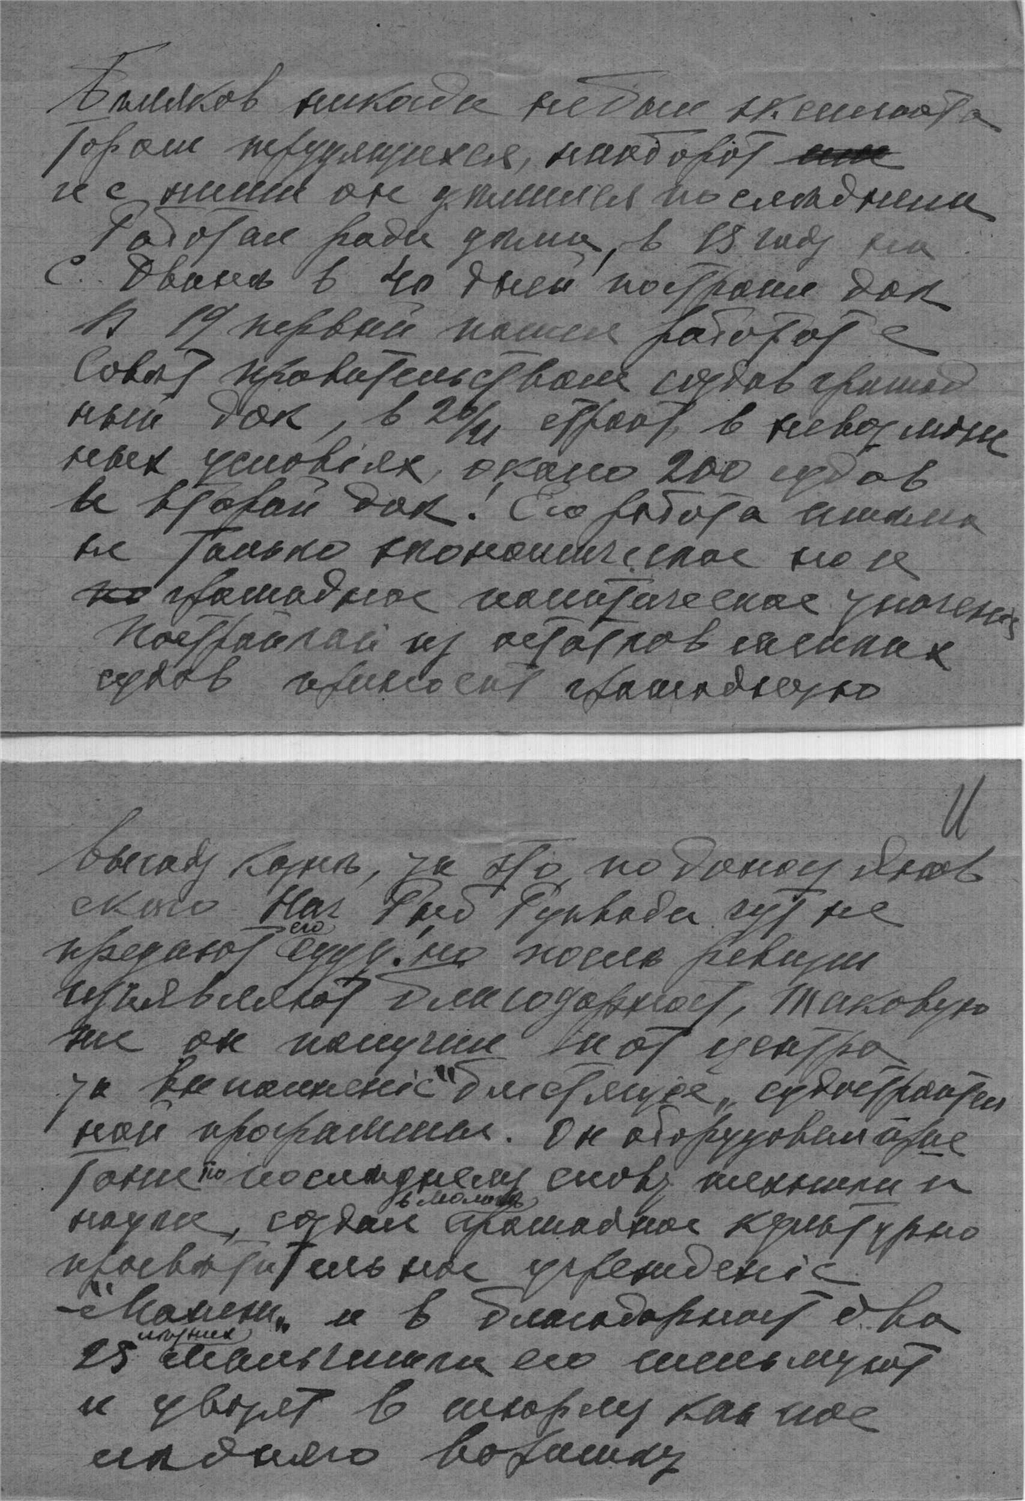 никогда не был эксплоата
тором трудящихся, наоборот
и с ними он делился последнем
Работал ради дела, в 18 году на
С. Двине в 40 дней построил док
В 19 первый пошел работать с
Совет правительством создав громад
ный док, в 20/21 строит в невозмож
ных условіях, около 200 судов
и второй док! Его работа имела
не только экономическое но и
громадное политическое значеніе
Постройкой из остатков
судов приносит громадную
11
выгоду казне, за что, по доносу
ского Нач чуть не
предают его суду. но после ревизіи
изъявляют благодарност, таковую
же он получил и от центра
за выполненіе "блестящее" судостроител
ной программы. Он оборудовал
тоне по последнему слову техники и
науки, создал громадное культурно
просветительное учрежденіе
и в благодарност два
25 летних мальчишки его
и увозят в тюрму как